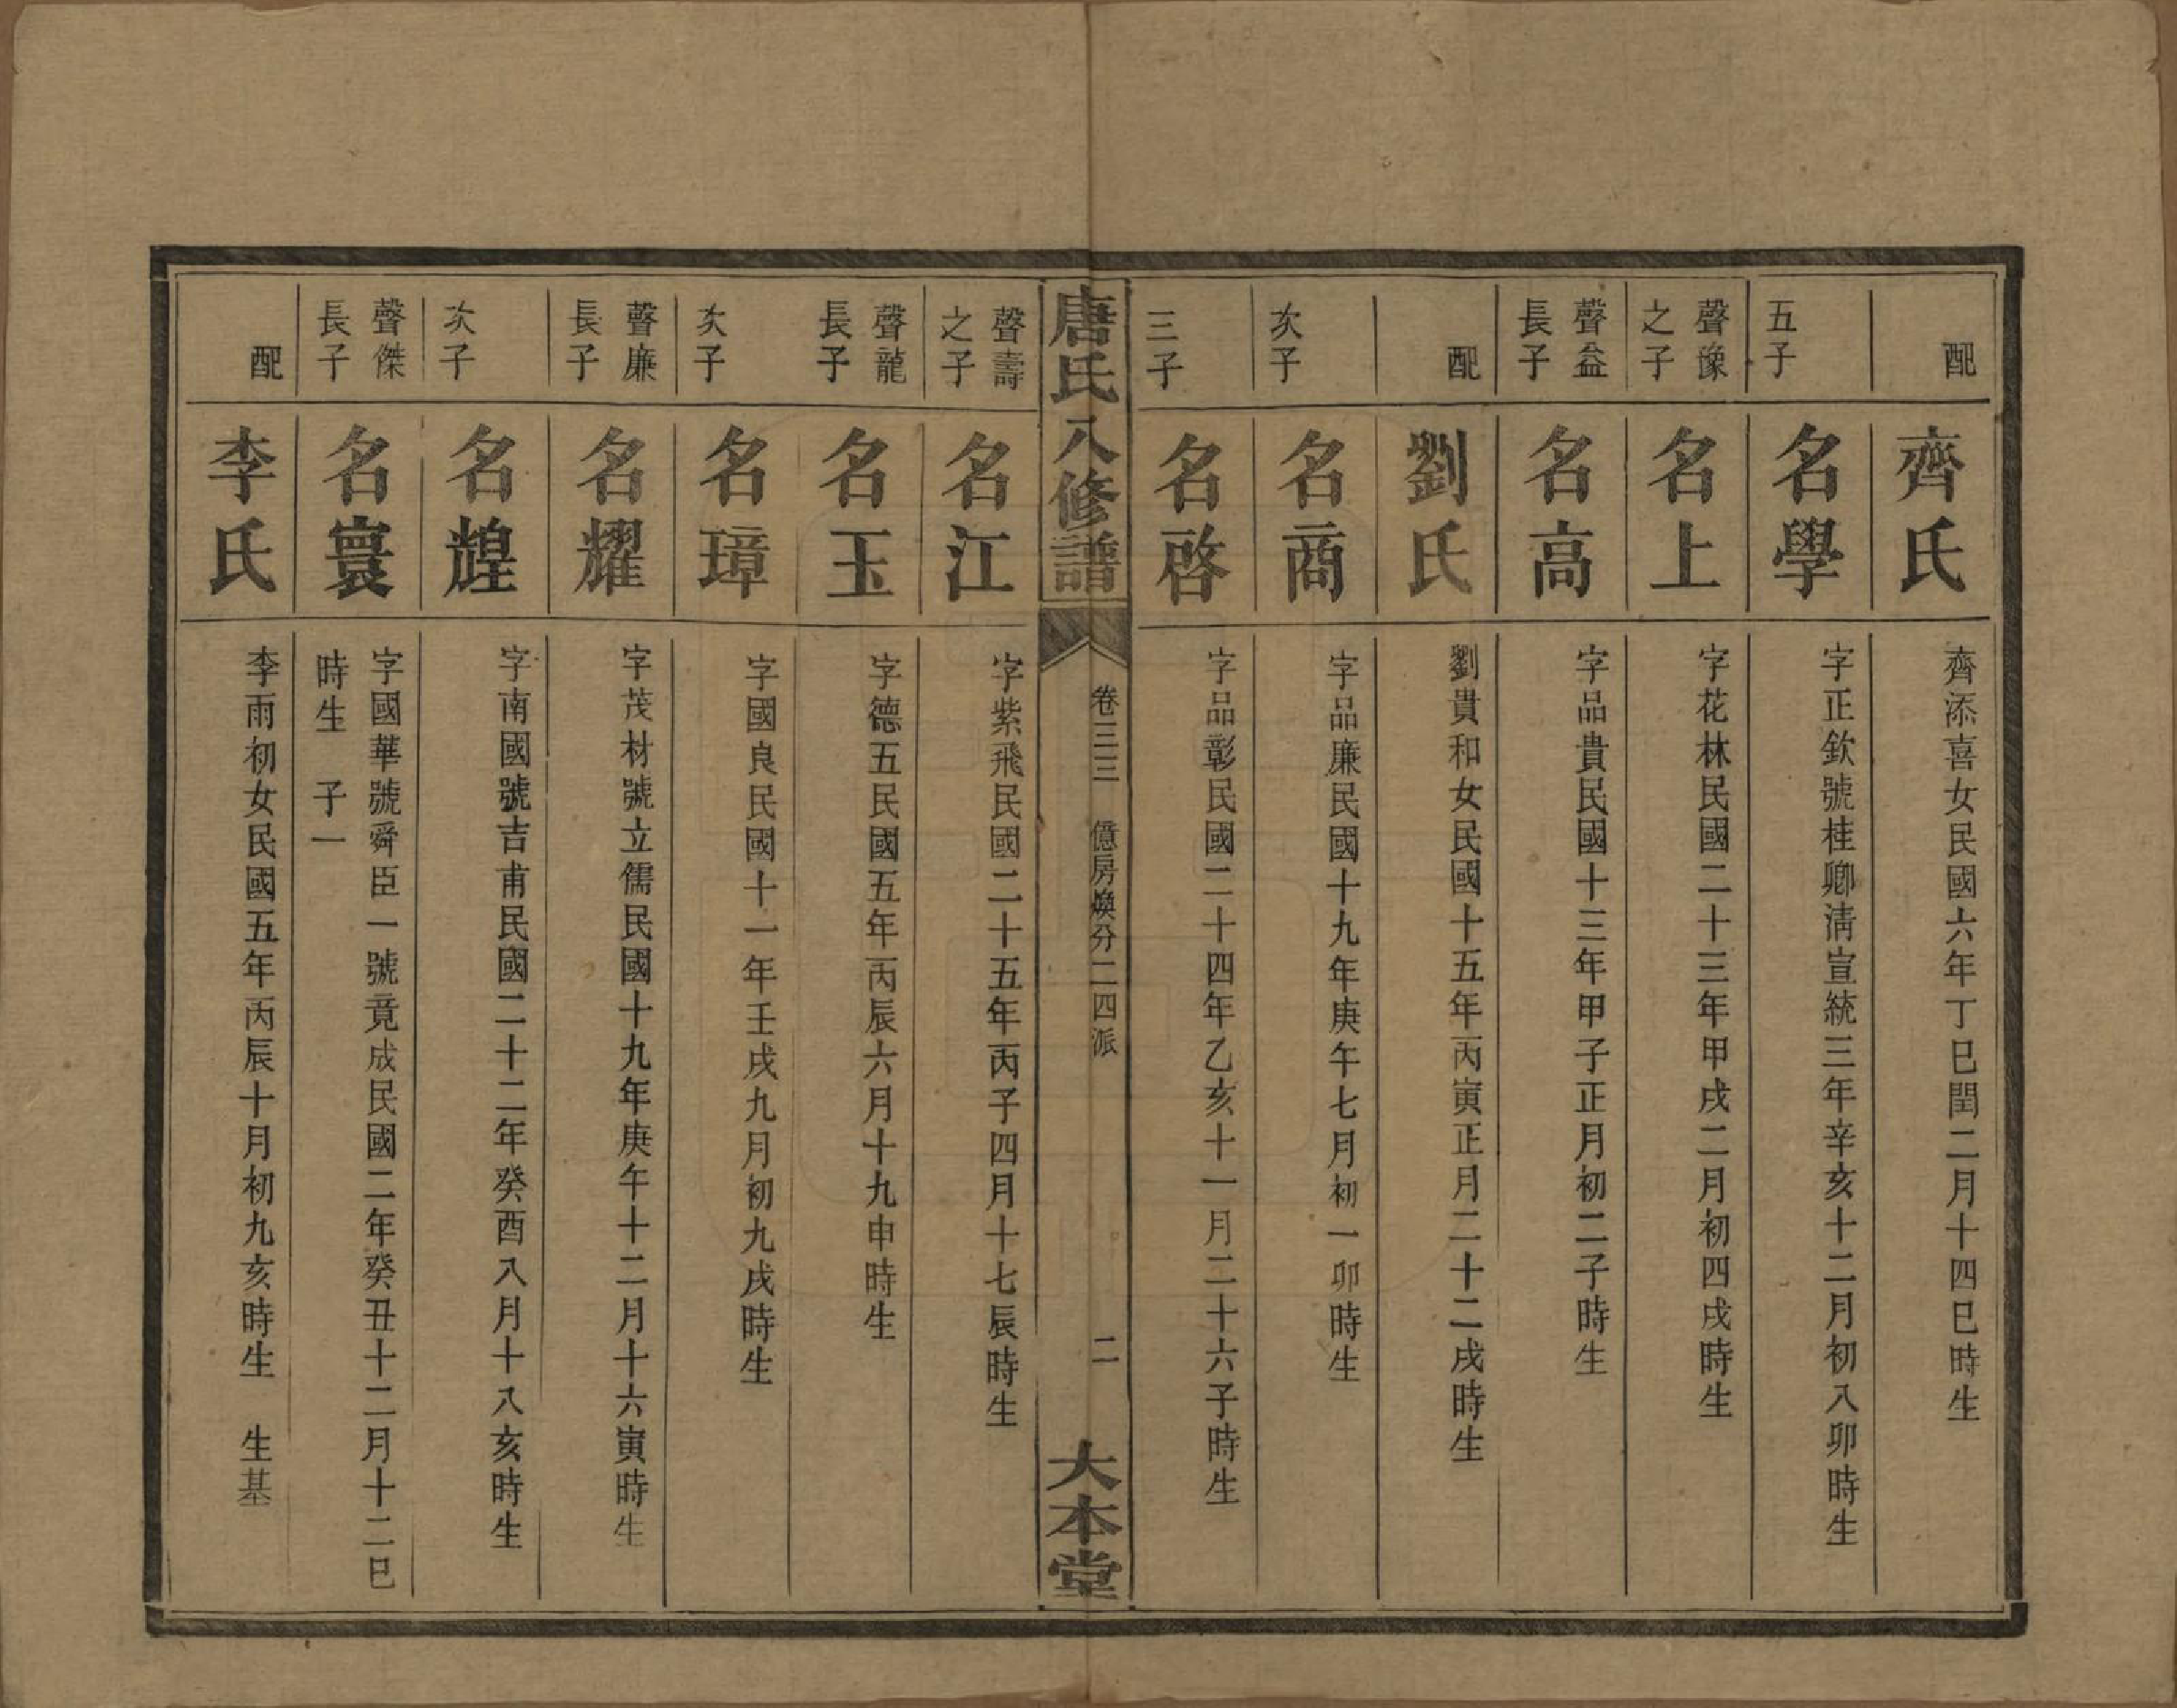 配
齊氏
齊添喜女民國六年丁巳閏二月十四巳時生
五子
名學
字正欽號桂卿清宣統三年辛亥十二月初八卯時生
聲豫
之子
名上
字花林民國二十三年甲戌二月初四戌時生
聲益
長子
名高
字品貴民國十三年甲子正月初二子時生
配
劉氏
劉貴和女民國十五年丙寅正月二十二戌時生
次子
名商
字品廉民國十九年庚午七月初一卯時生
三子
名啓
字品彰民國二十四年乙亥十一月二十六子時生
唐氏八修譜
卷三三 億房煥分二四派
二
大本堂
聲壽
之子
名江
字紫飛民國二十五年丙子四月十七辰時生
聲龍
長子
名玉
字德五民國五年丙辰六月十九申時生
次子
名璋
字國良民國十一年壬戌九月初九戌時生
聲廉
長子
名耀
字茂材號立儒民國十九年庚午十二月十六寅時生
次子
名煌
字南國號吉甫民國二十二年癸酉八月十八亥時生
聲傑
長子
名寰
字國華號舜臣一號竟成民國二年癸丑十二月十二巳
時生 子一
配
李氏
李雨初女民國五年丙辰十月初九亥時生 生基